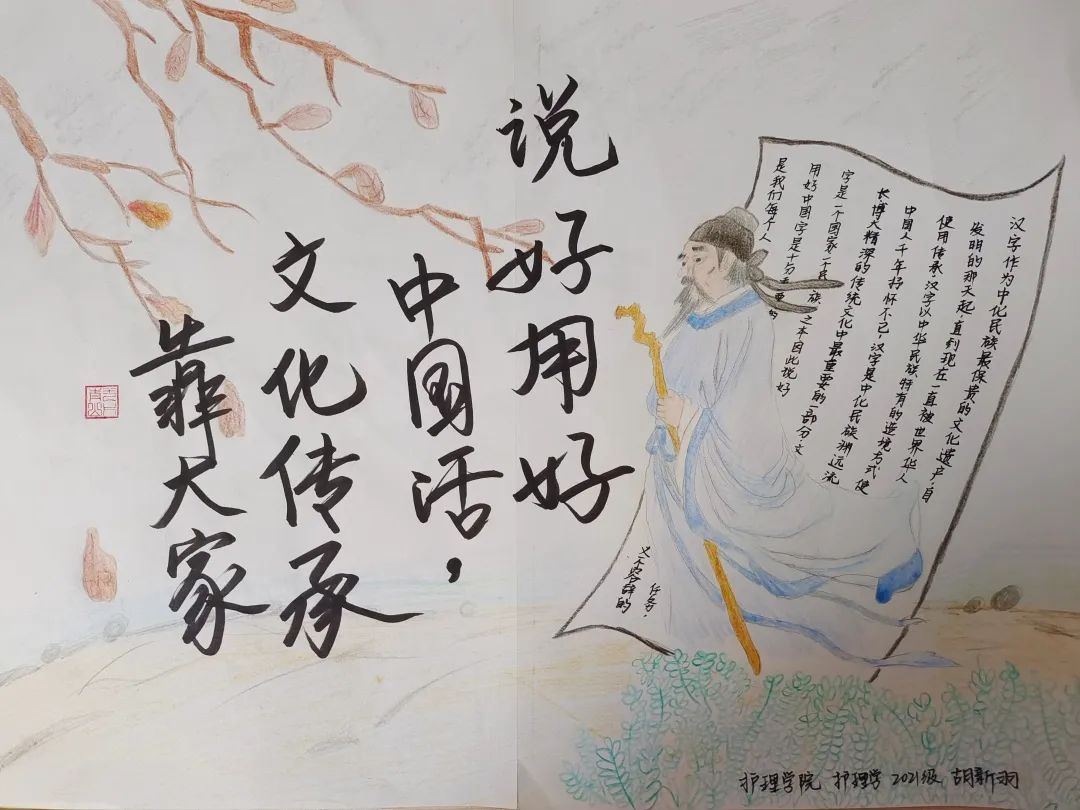 说好用好
中国活，
文化传承
靠大家
汉字作为中化民族最保贵的文化遗产，自
发明的那天起，直到现在一直被世界华人
使用传承，汉字以中华民族特有的造境方式使
中国人千年抒怀不已，汉字是中化民族渊远流
长博大精深的传统文化中最重要的一部分，文
字是一个国家一族之本因此说好
用好中国字是十分重的
是我们每个人
义不容辞的
任务.
护理学院 护理学 2021级 胡新羽